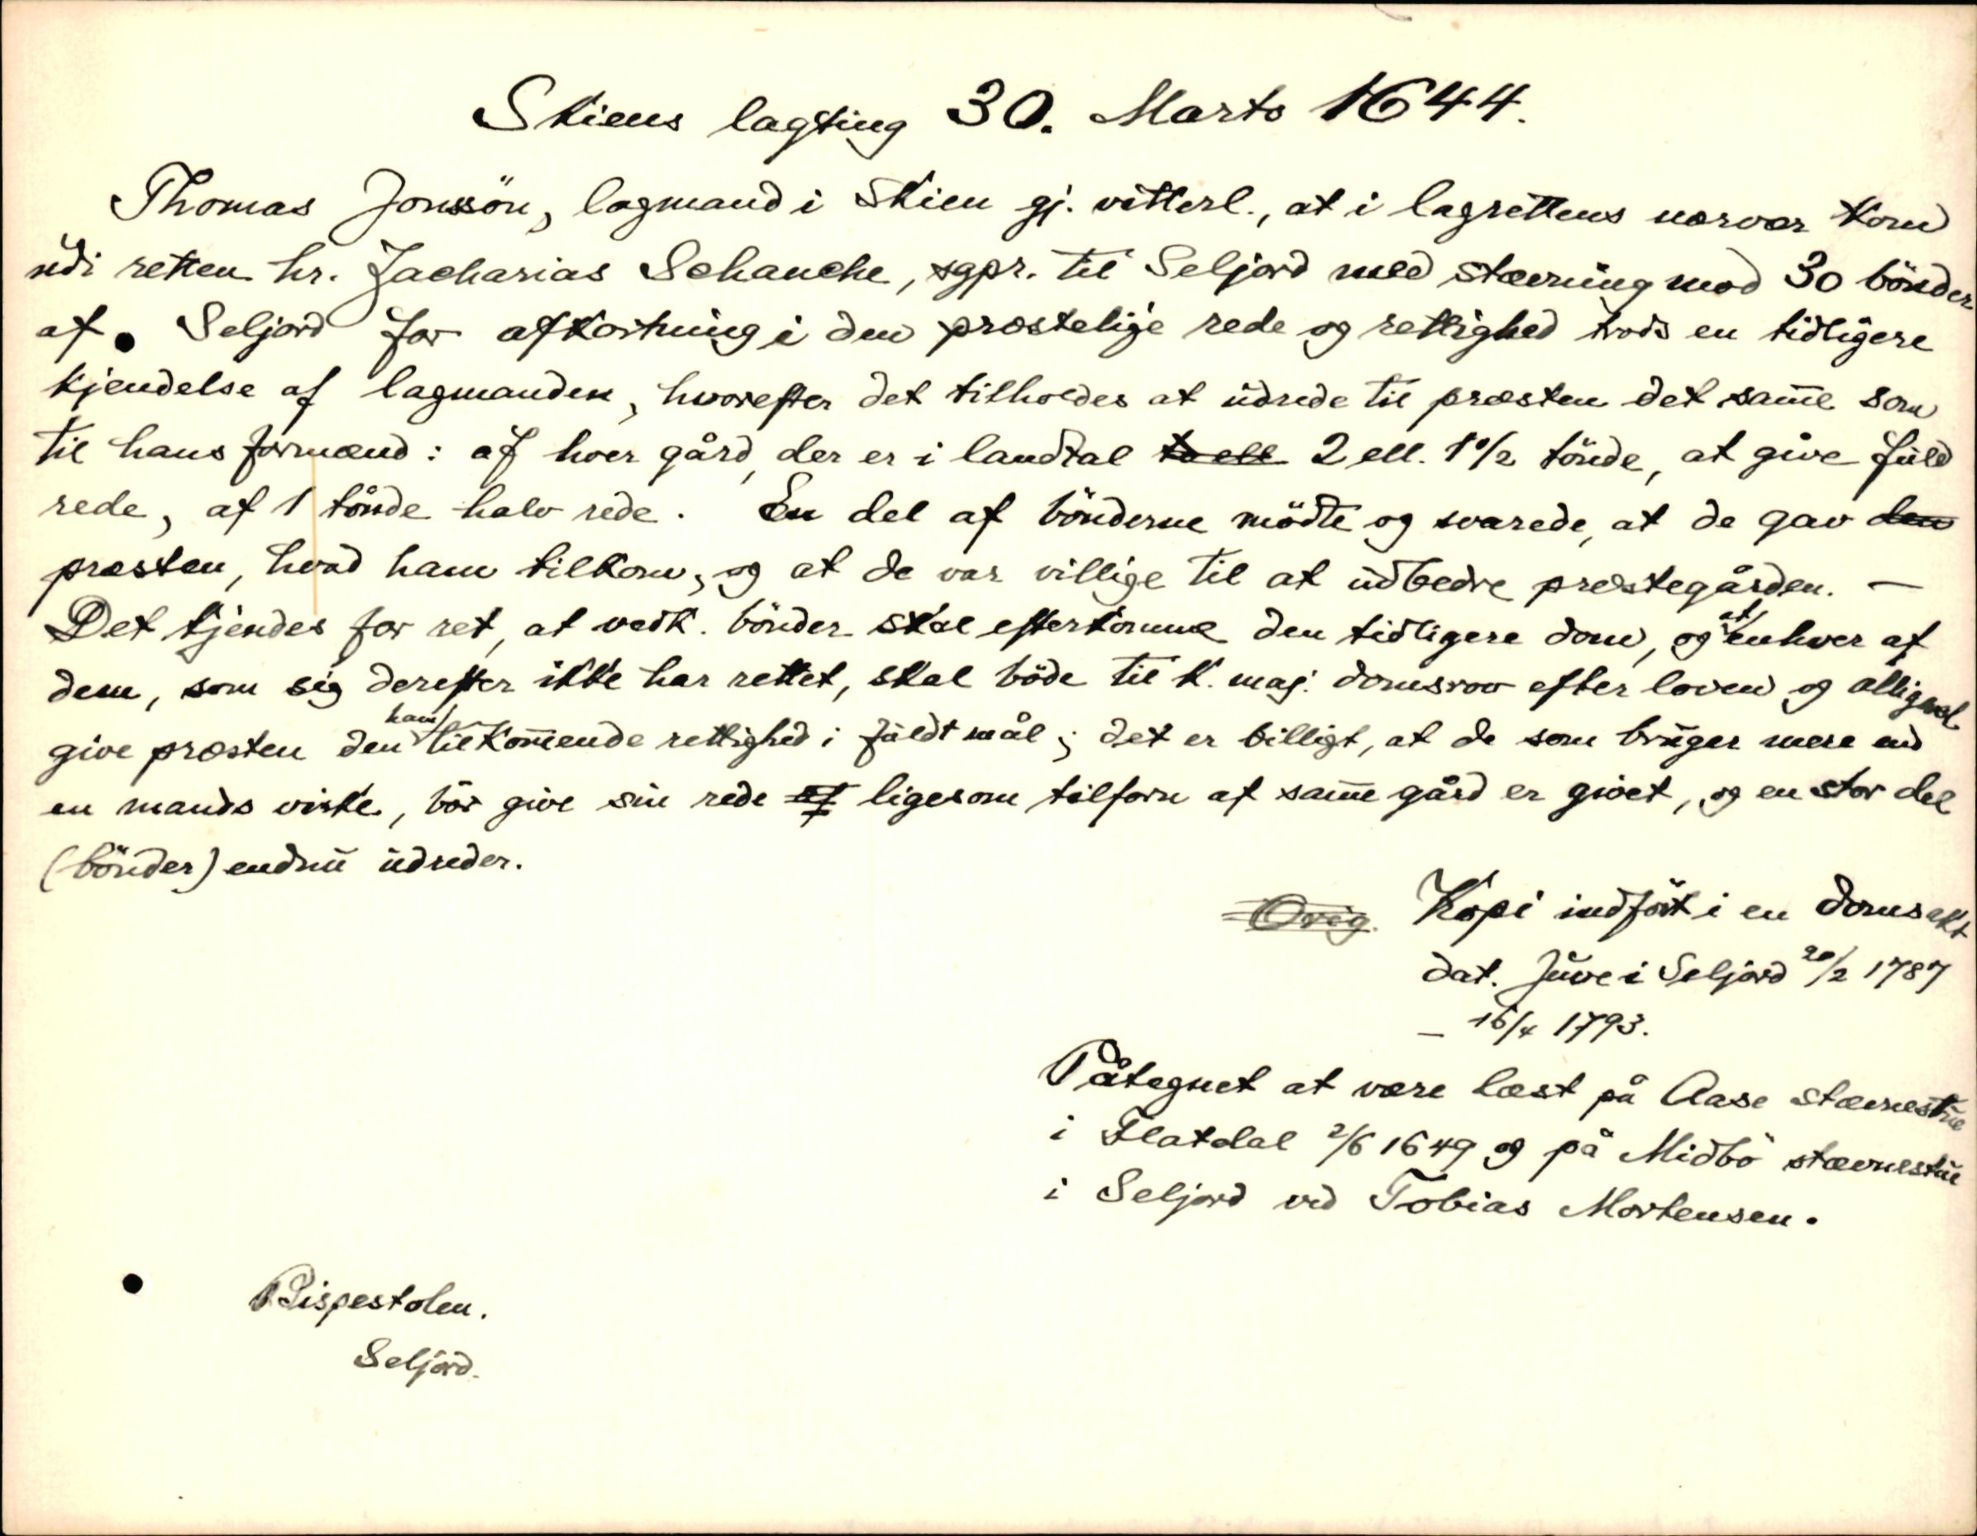 Skiens lagting 30. Marts 1644.
Thomas Jonssön, lagmand i Skien gj. vitterl., at i lagrettens nærvær kom
udi retten hr. Zacharias Schanche, sgpr. til Seljord med stævning mod 30 bönder
af Seljord for afkortning i den præstelige rede og rettighed trods en tidligere
kjendelse af lagmanden, hvorefter det tilholdes at udrede til præsten det samme som
til hans formænd: af hver gård, der er i landtal to ell 2 ell. 1 1/2 tönde, at give fuld
rede, af 1 tönde halv rede. En del af bönderne mödte og svarede, at de gav den
præsten, hvad ham tilkom, og at de var villige til at udbedre præstegården. —
Det kjendes for ret, at vedk. bönder skal efterkomme den tidligere dom, og at enhver af
dem, som sig derefter ikke har rettet, skal böde til k. maj. domsrov efter loven og alligevel
give præsten den ham tilkommende rettighed i fuldt mål; det er billigt, at de som bruger mere end
en mands virke, bör give sin rede af ligesom tilforn af samme gård er givet, og en stor del
(bönder) endnu udreder.
Orig. Kopi indfört i en domsakt
dat. Juve i Seljord 20/2 1787
— 16/4 1793.
Påtegnet at være læst på Aase stævnestue
i Flatdal 2/6 1649 og på Midbö stævnestue
i Seljord ved Tobias Mortensen.
Bispestolen.
Seljord.